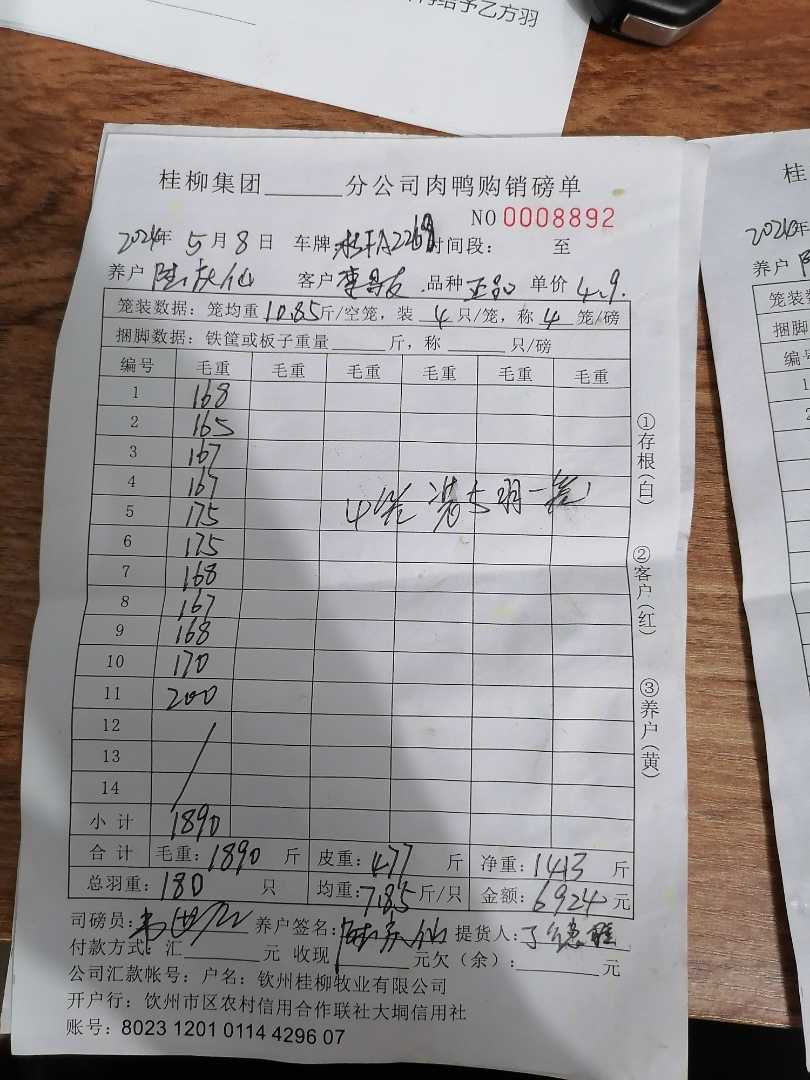 给予乙方羽
桂柳集团______分公司肉鸭购销磅单
NO 0008892
2024年 5月 8日 车牌: A2269 时间段: 至
养户 陆庆仙 客户 品种 正品 单价 4.9.
笼装数据: 笼均重 10.85斤/空笼, 装 4 只/笼, 称 4 笼/磅
捆脚数据: 铁筐或板子重量______斤, 称______只/磅
编号 毛重 毛重 毛重 毛重 毛重 毛重
1 168
2 165
3 167
4 167
5 175
6 175
7 168
8 167
9 168
10 170
11 200
12
13
14
4笼装5羽一笼
小计 1890
合计 毛重: 1890 斤 皮重: 477 斤 净重: 1413 斤
总羽重: 180 只 均重: 7.85斤/只 金额: 6924元
司磅员: 养户签名: 陆庆仙 提货人:
付款方式: 汇______元 收现______元欠(余):______元
公司汇款帐号: 户名: 钦州桂柳牧业有限公司
开户行: 钦州市区农村信用合作联社大垌信用社
账号: 8023 1201 0114 4296 07
①存根(白)
②客户(红)
③养户(黄)
桂
2024年
养户
笼装
捆脚
编号
1
2